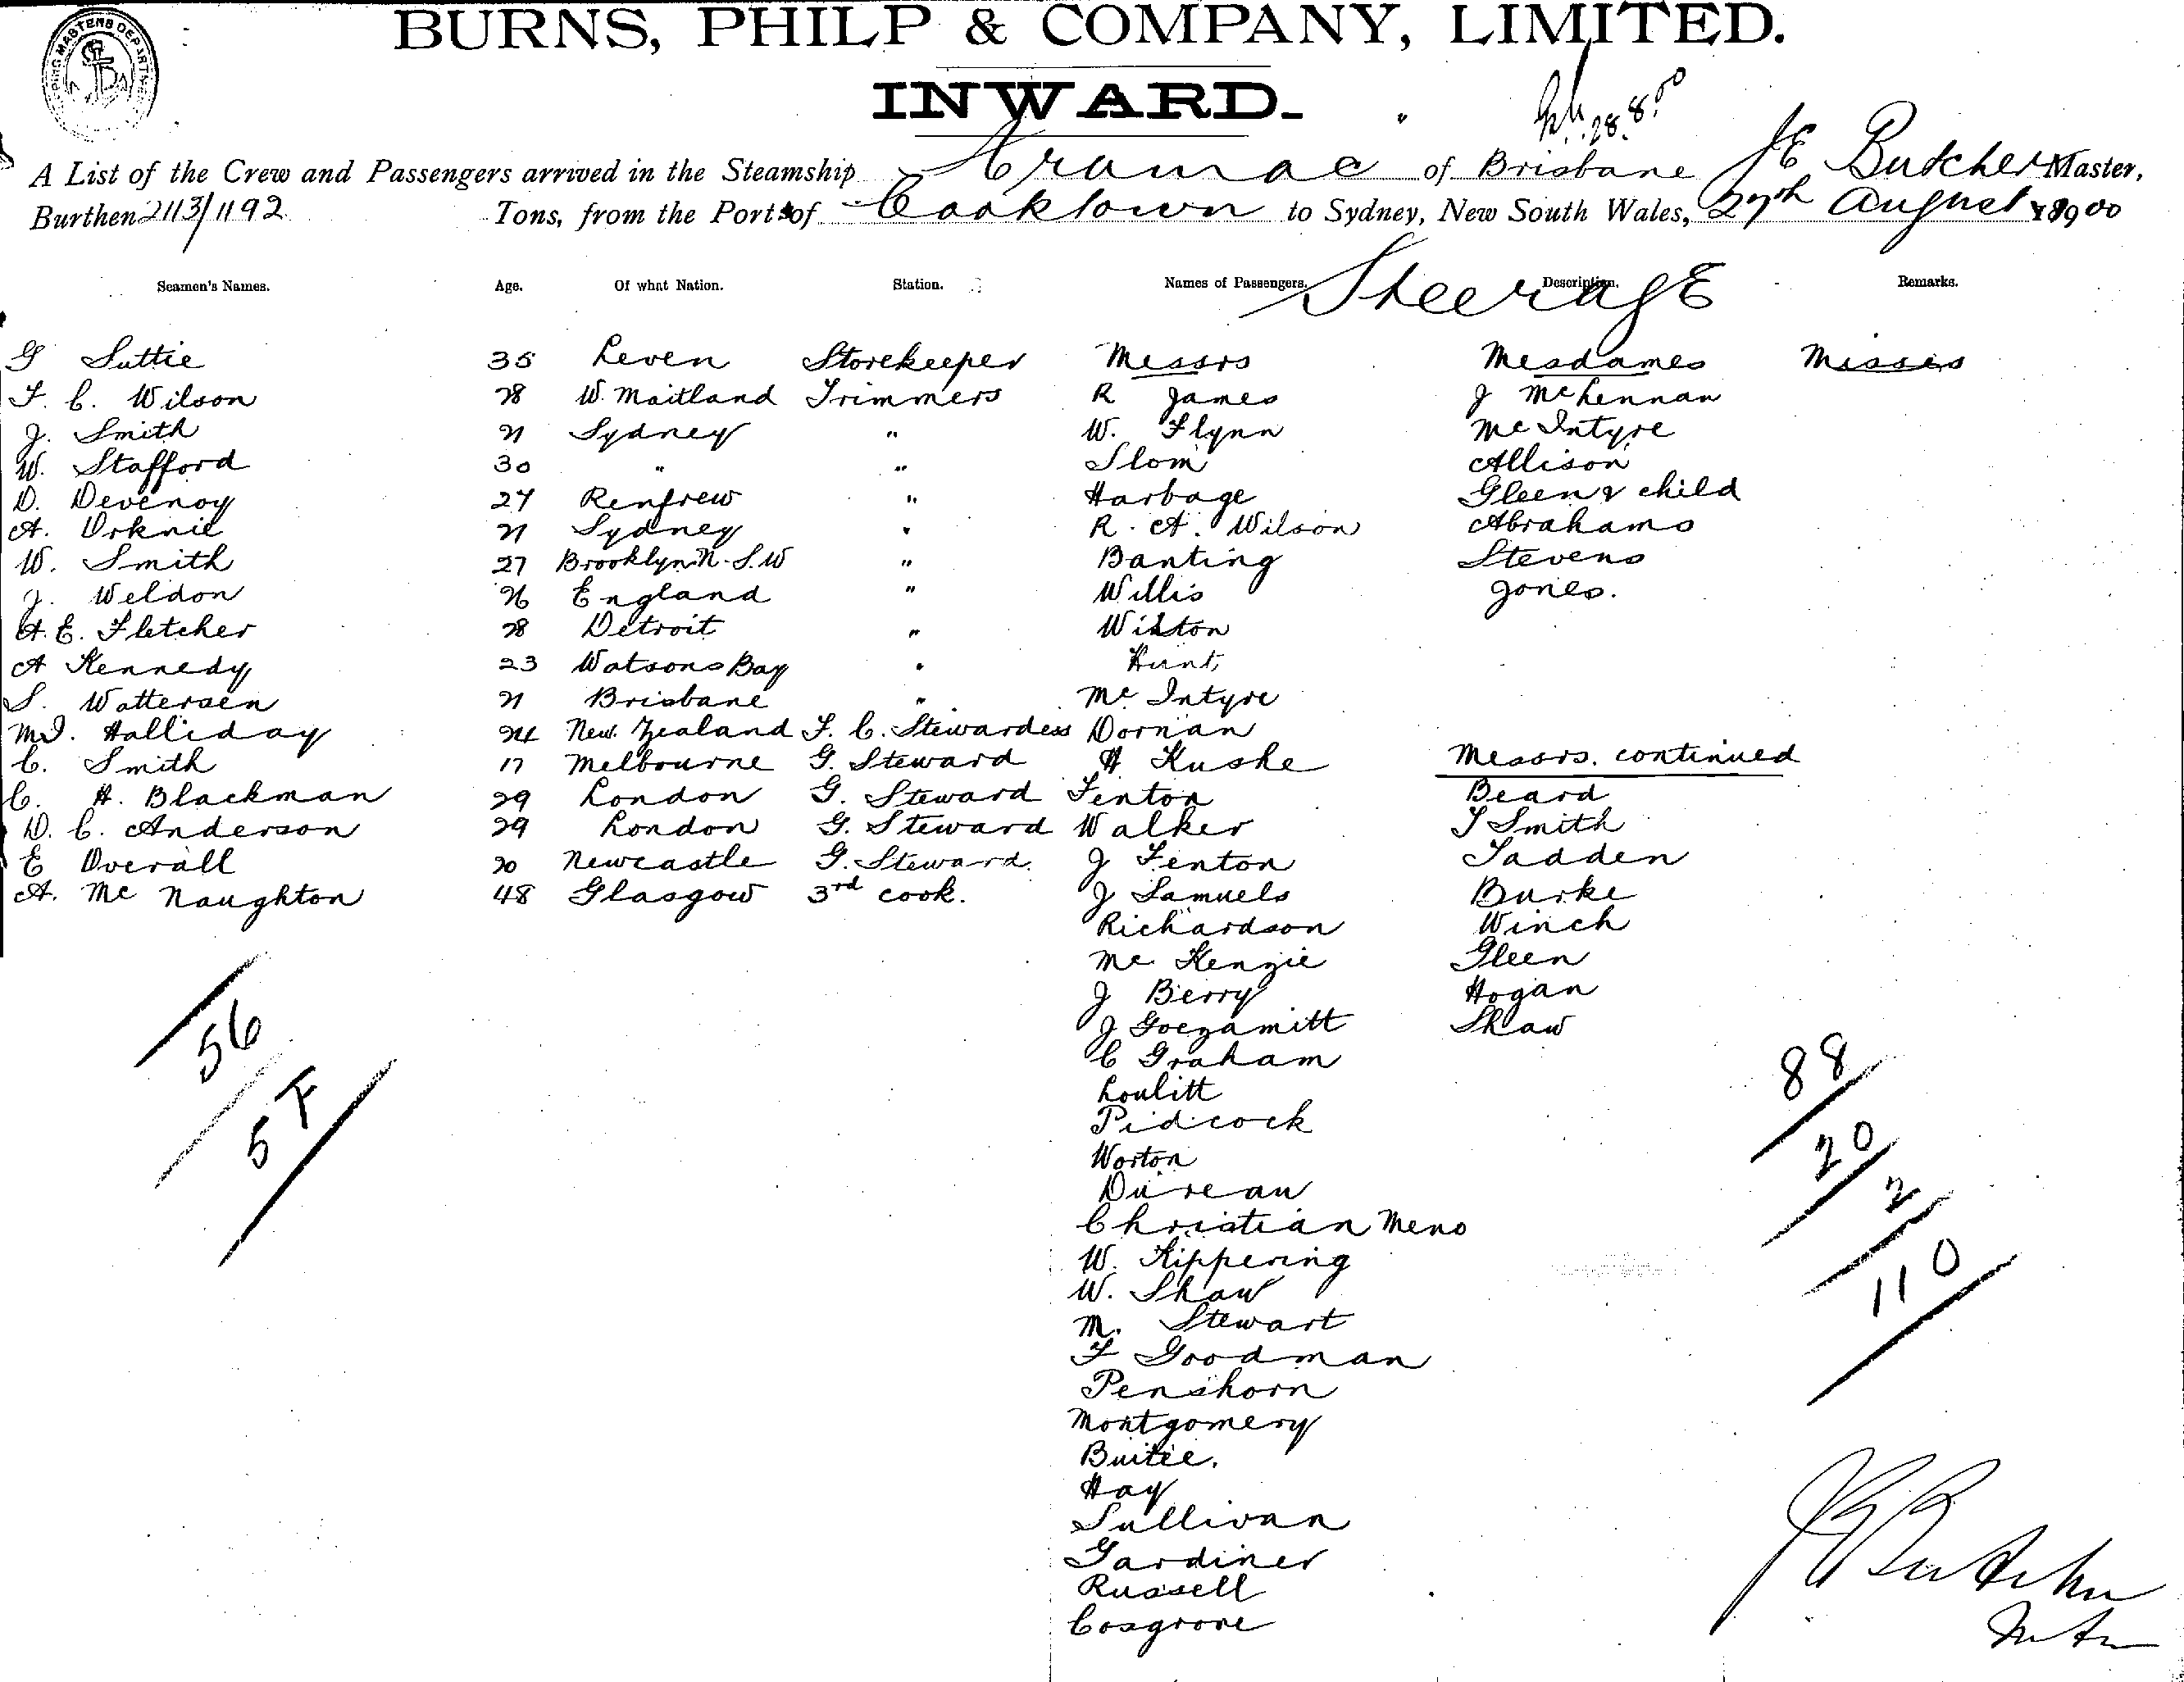 BURNS, PHILP & COMPANY, LIMITED.
INWARD.
28.8.00
A List of the Crew and Passengers arrived in the Steamship Aramac of Brisbane JE Butcher Master,
Burthen 2113/1192 Tons, from the Port of Cooktown to Sydney, New South Wales, 27th August 1900
Seamen's Names. Age. Of what Nation. Station. Names of Passengers. Description. Remarks.
Steerage
G Suttie 35 Leven Storekeeper Messrs Mesdames Misses
F. C. Wilson 28 W. Maitland Trimmers R James J McLennan
J. Smith 21 Sydney " W. Flynn McIntyre
W. Stafford 30 " " Slom Allison
D. Devenoy 27 Renfrew " Harbage Gleen & child
A. Orknie 21 Sydney " R. A. Wilson Abrahams
W. Smith 27 Brooklyn N.S.W " Banting Stevens
J. Weldon 26 England " Willis Jones.
A. E. Fletcher 28 Detroit " Wilton
A Kennedy 23 Watsons Bay " Hunt
S. Wattersen 21 Brisbane " Mc Intyre
M J. Halliday 24 New Zealand F. C. Stewardess Dornan
C. Smith 17 Melbourne G. Steward H Kuske Messrs. continued
C. H. Blackman 29 London G. Steward Fenton Beard
D. C. Anderson 29 London G. Steward Walker J Smith
E Overall 20 Newcastle G. Steward. J Fenton Tadden
A. Mc Naughton 48 Glasgow 3rd cook. J Samuels Burke
Richardson Winch
Mc Kenzie Gleen
J Berry Hogan
J Goezamitt Shaw
C Graham
Loulitt
Pidcock
Worton
Durean
Christian Meno
W. Kippering
W. Shaw
M. Stewart
F Goodman
Penshorn
Montgomery
Buitee.
Hay
Sullivan
Gardiner
Russell
Cosgrove
56
57
88
20
2
110
JE Butcher